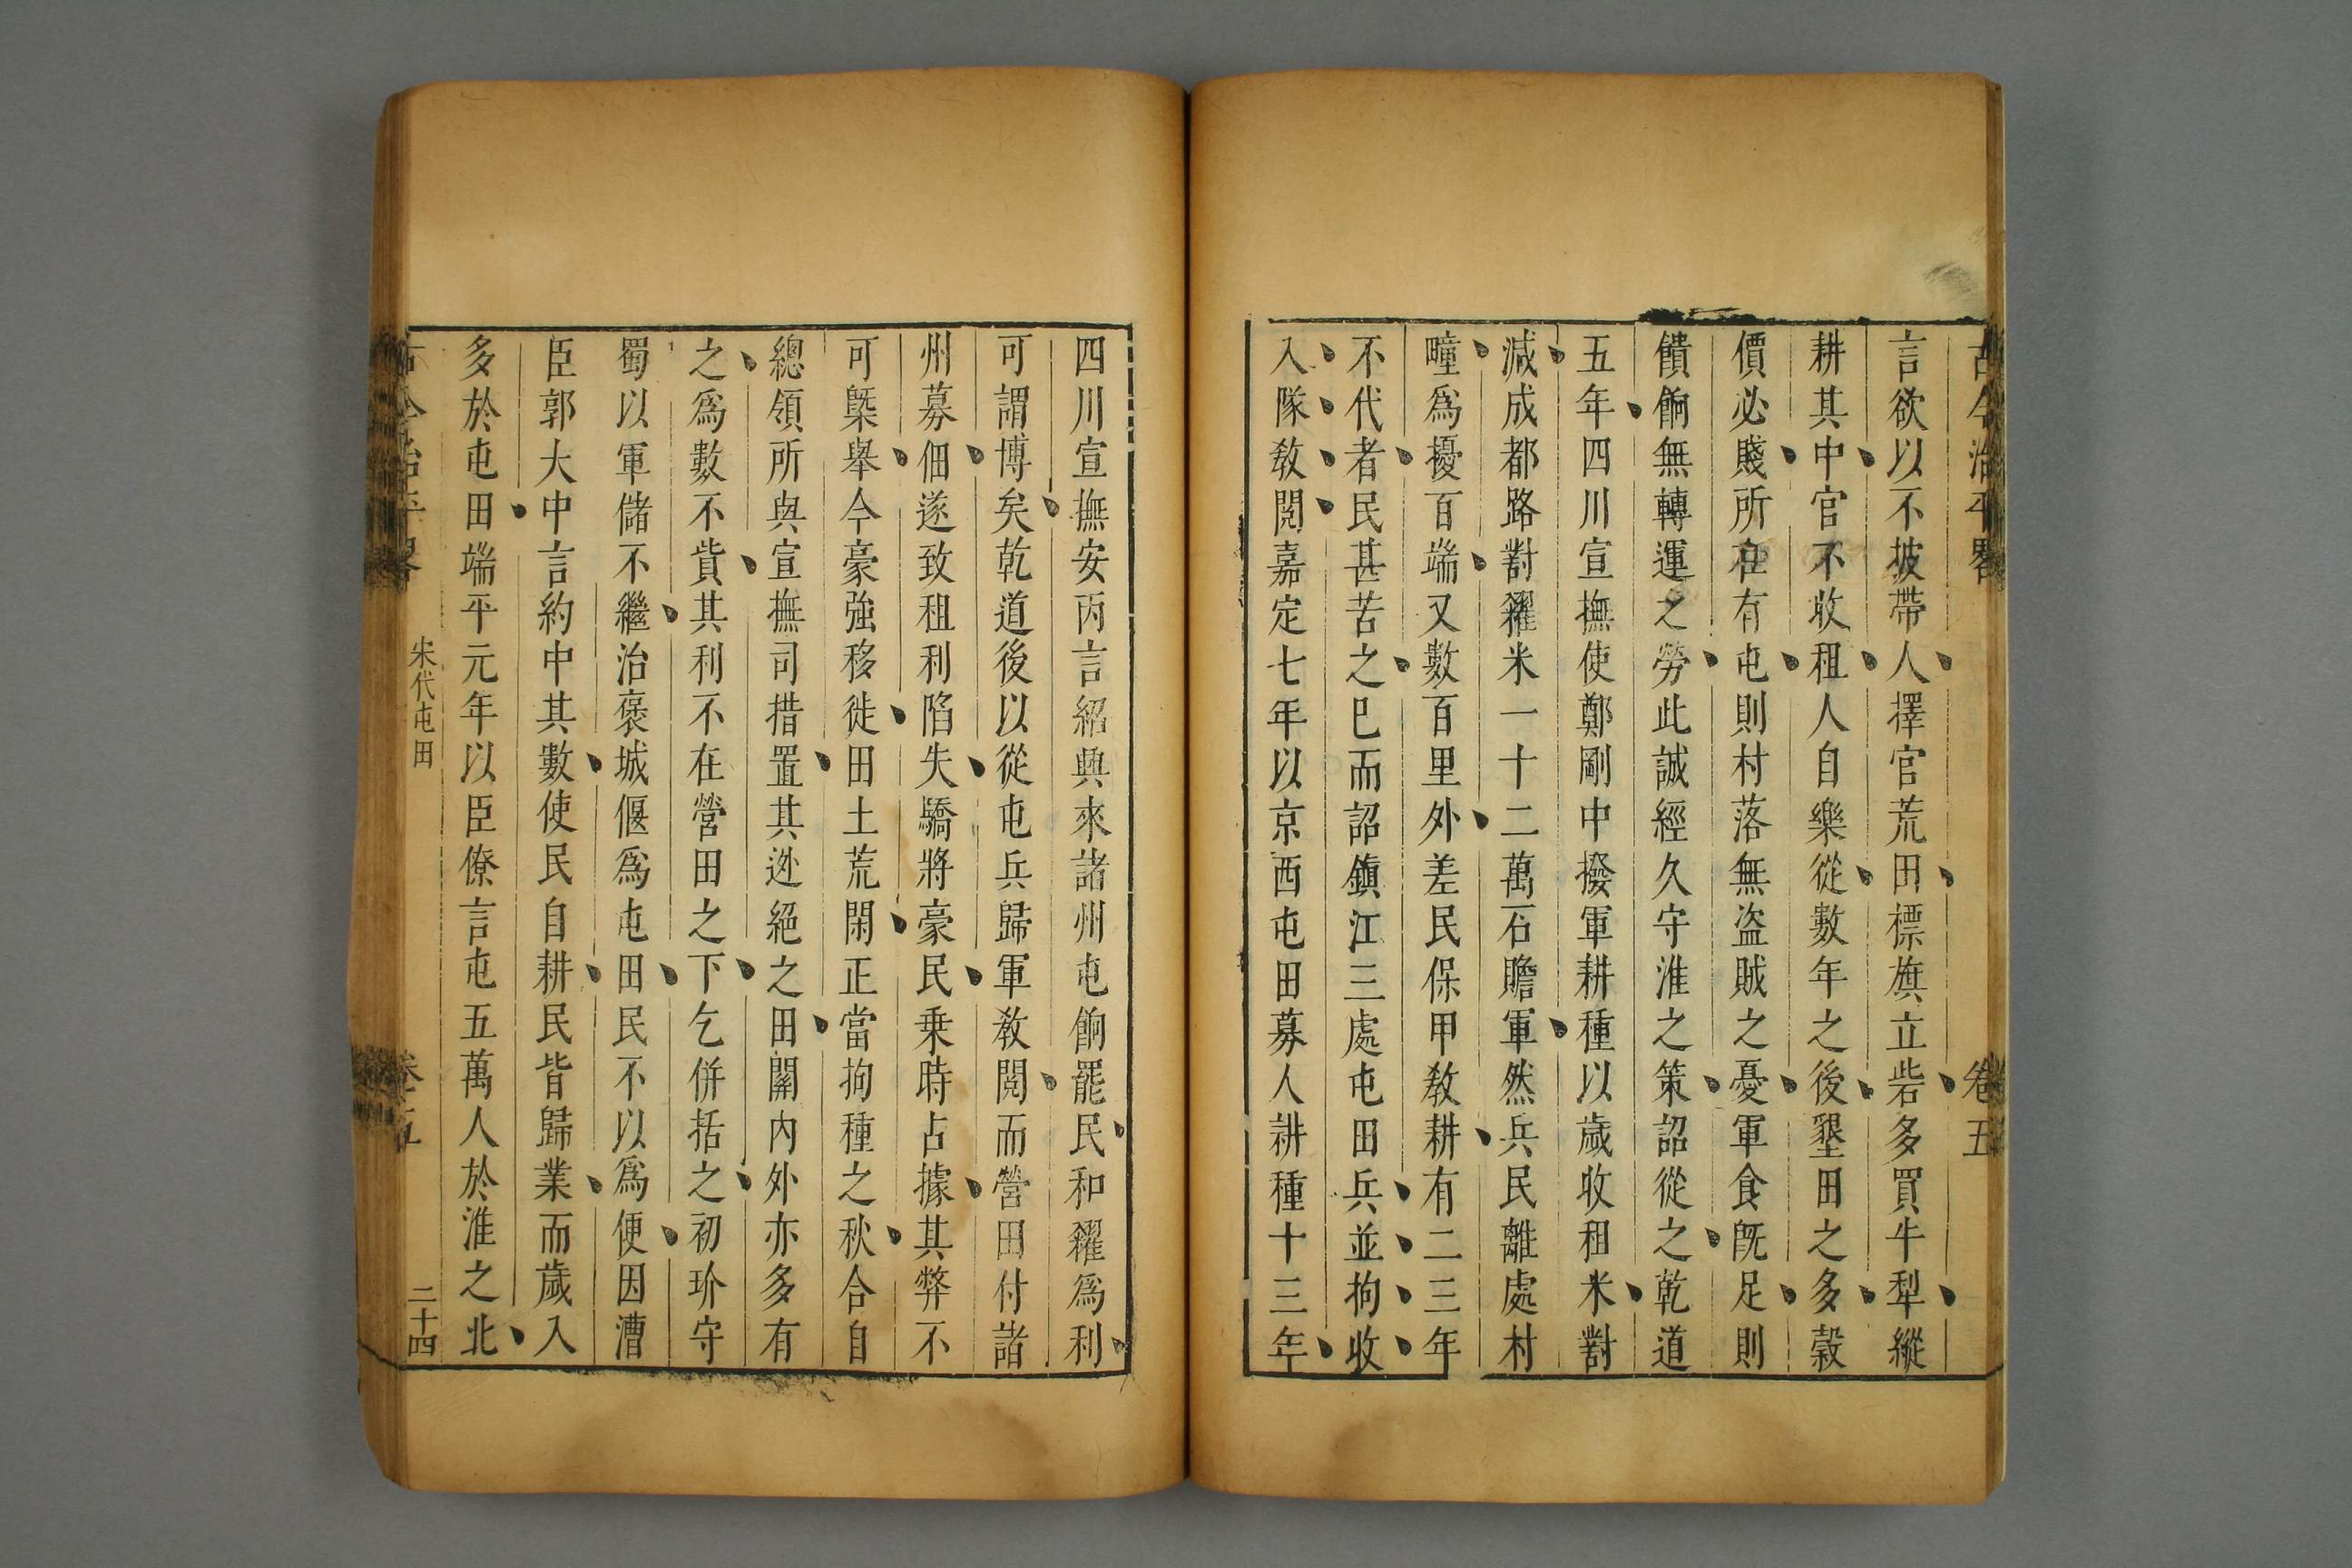 古今治平畧 卷五
言欲以不披帶人擇官荒田標旗立砦多買牛犁縱
耕其中官不收租人自樂從數年之後墾田之多穀
價必賤所在有屯則村落無盜賊之憂軍食既足則
饋餉無轉運之勞此誠經久守淮之策詔從之乾道
五年四川宣撫使鄭剛中撥軍耕種以歲收租米對
減成都路對糴米一十二萬石贍軍然兵民雜處村
疃爲擾百端又數百里外差民保甲教耕有二三年
不代者民甚苦之已而詔鎮江三處屯田兵並拘收
入隊教閱嘉定七年以京西屯田募人耕種十三年
四川宣撫安丙言紹興來諸州屯餉罷民和糴爲利
可謂博矣乾道後以從屯兵歸軍教閱而營田付諸
州募佃遂致租利陷失驕將豪民乗時占據其弊不
可槩舉今豪強移徙田土荒閑正當拘種之秋合自
總領所與宣撫司措置其迯絕之田關內外亦多有
之爲數不貲其利不在營田之下乞併括之初玠守
蜀以軍儲不繼治褒城堰爲屯田民不以爲便因漕
臣郭大中言約中其數使民自耕民皆歸業而歲入
多於屯田端平元年以臣僚言屯五萬人於淮之北
古今治平畧 宋代屯田 卷五 二十四